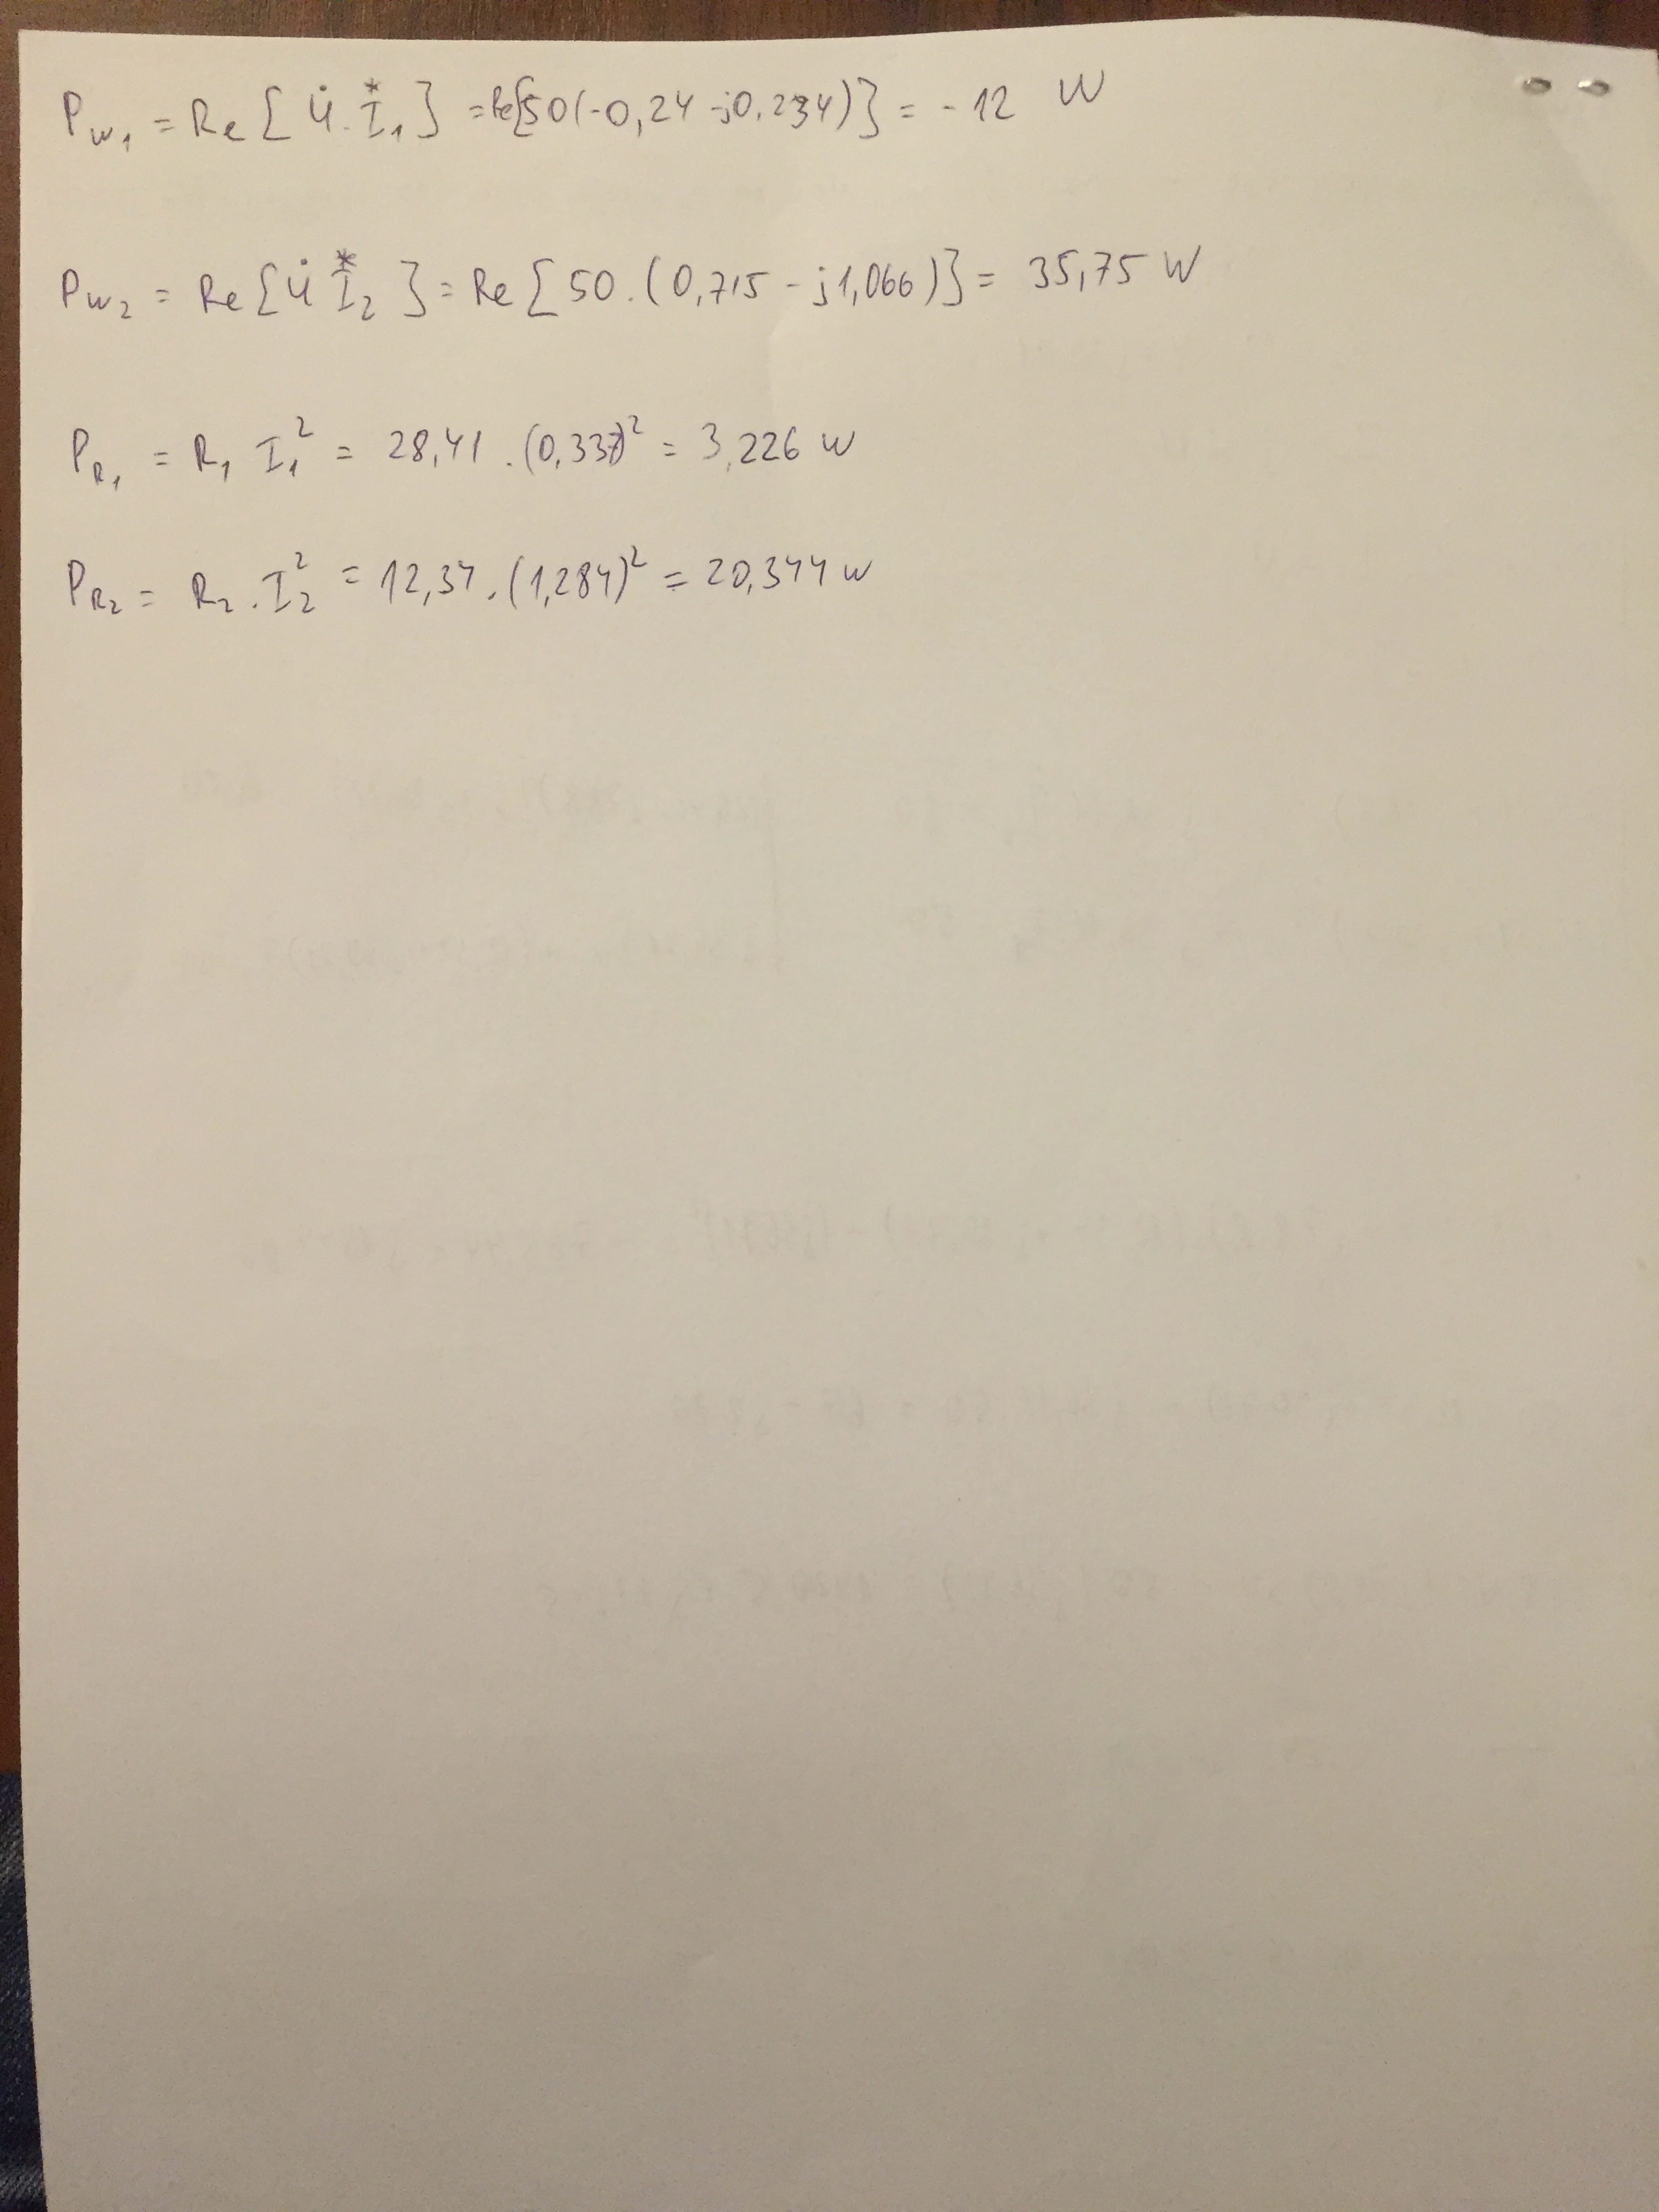 P_W1 = Re [ U̇ . I*_1 ] = Re[50(-0,24 -j0.234)] = -12 W
P_W2 = Re [ U̇ I*_2 ] = Re [ 50 . (0,715 - j1,066)] = 35,75 W
P_R1 = R_1 I_1^2 = 28,41 . (0,337)^2 = 3,226 W
P_R2 = R_2 . I_2^2 = 12,34 . (1,284)^2 = 20,344 W